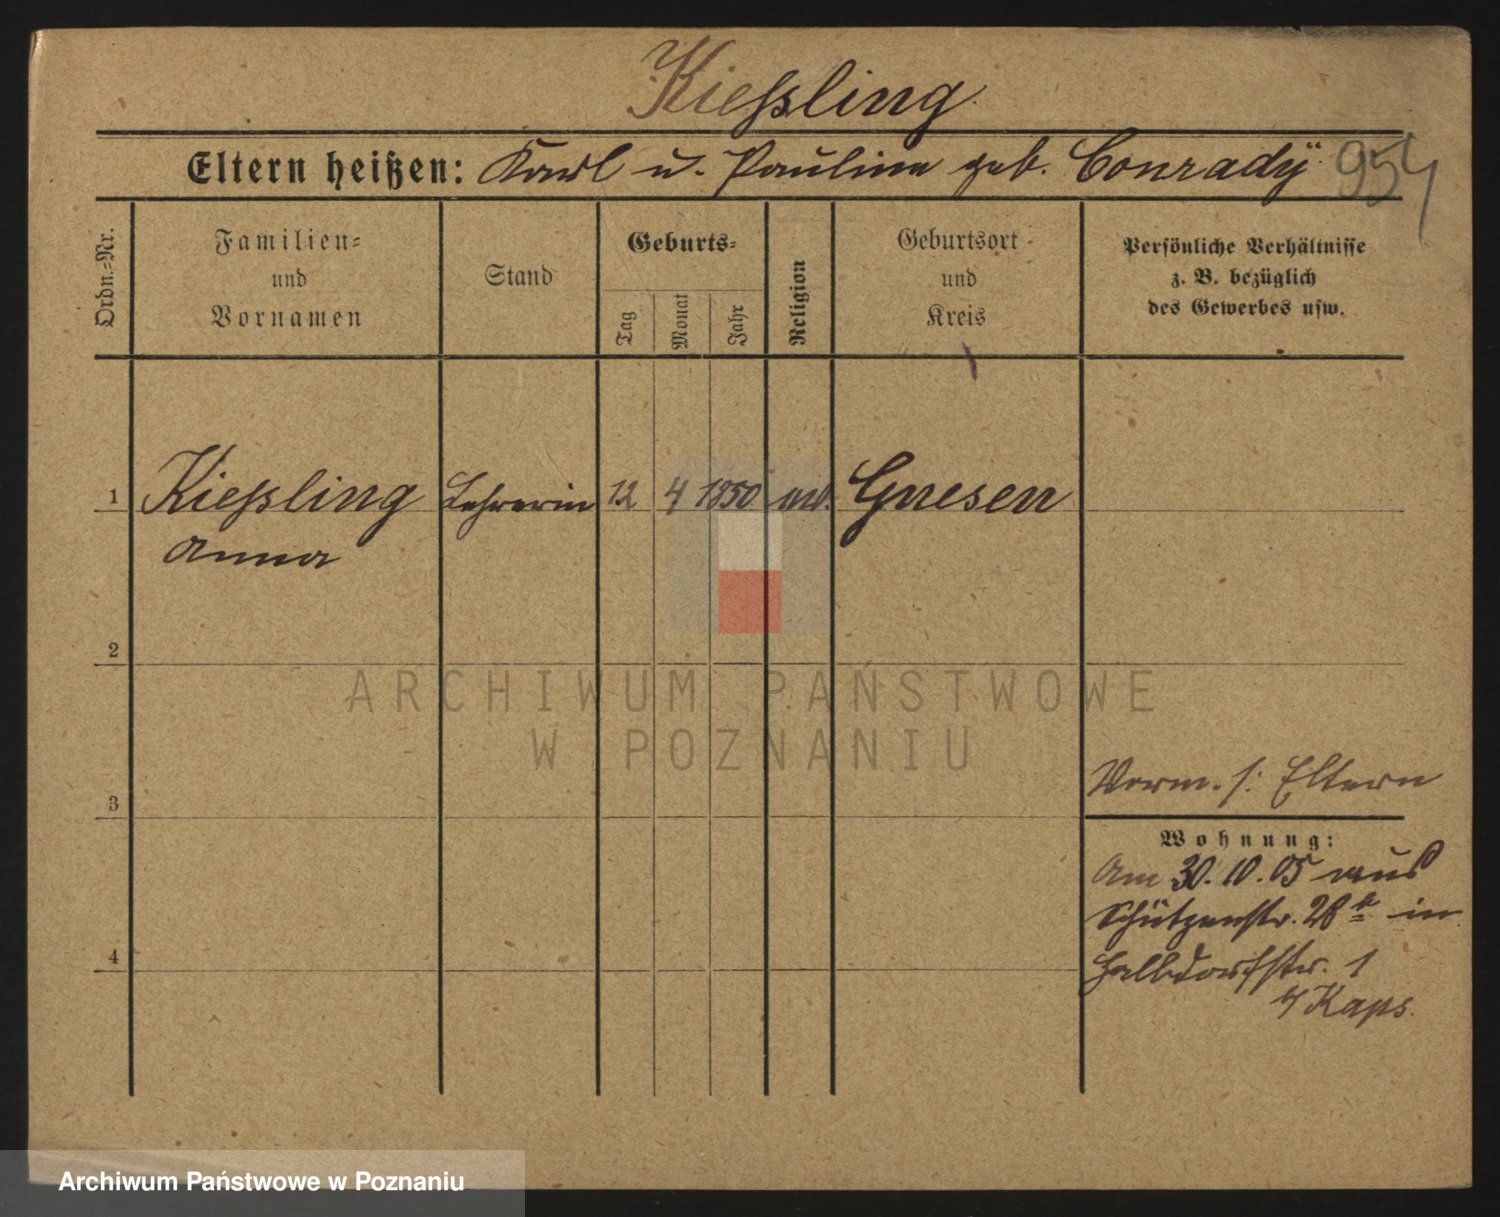 Kießling
Eltern heißen: Karl u. Pauline geb. Conrady
954
Ordn.-Nr.
Familien-
und
Vornamen
Stand
Geburts-
Tag
Monat
Jahr
Religion
Geburtsort
und
Kreis
Persönliche Verhältnisse
z. B. bezüglich
des Gewerbes usw.
1 Kießling Lehrerin 12 4 1850 Gnesen
Anna
2
ARCHIWUM PAŃSTWOWE
W POZNANIU
3
Verm. s: Eltern
Wohnung:
Am 30.10.05 aus
Schützenstr. 28 in
Halbdorfstr. 1
4
b/ Kaps.
Archiwum Państwowe w Poznaniu